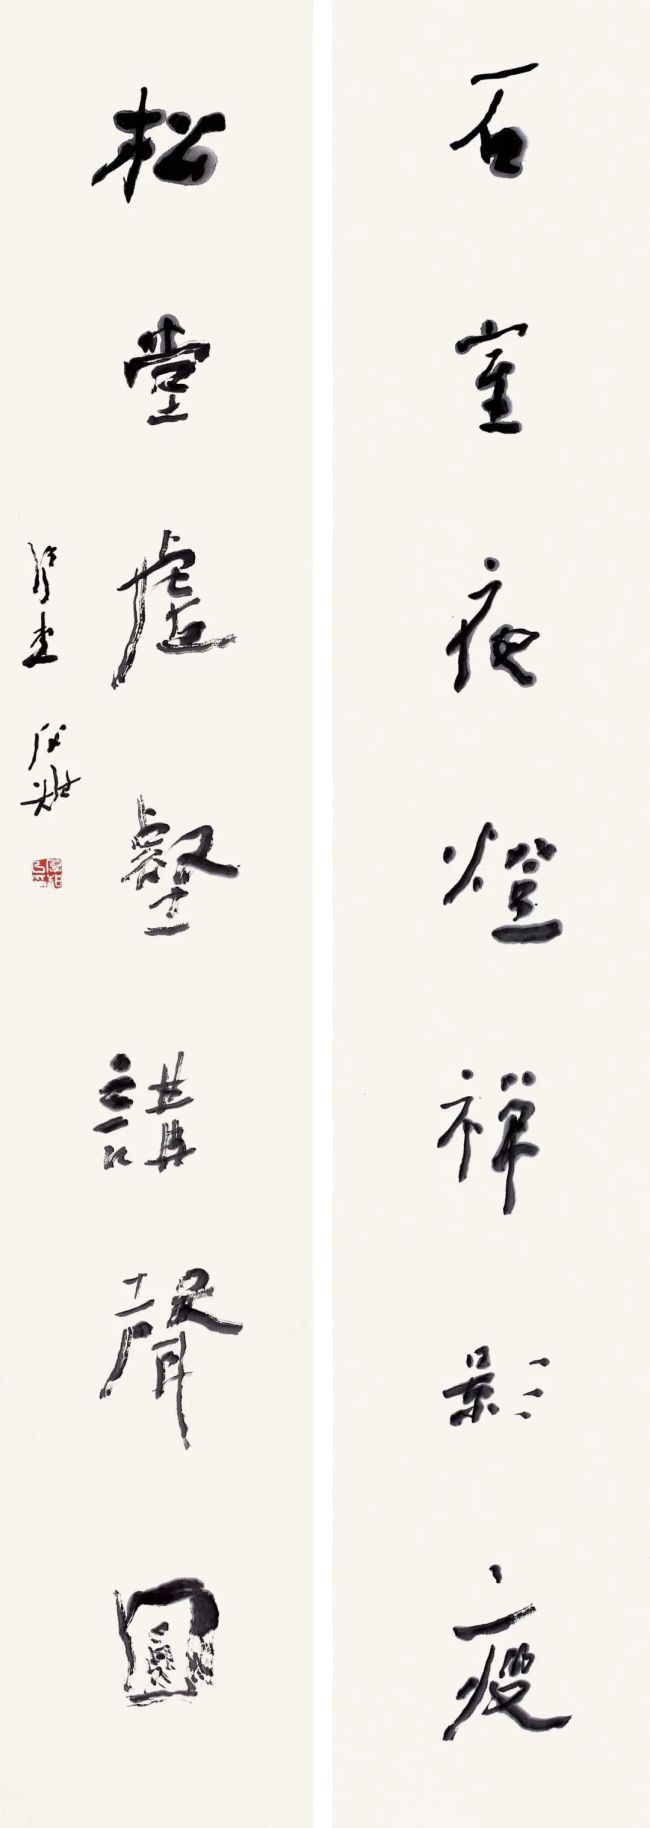 石室夜燈禪影瘦
松堂虛壑講聲圓